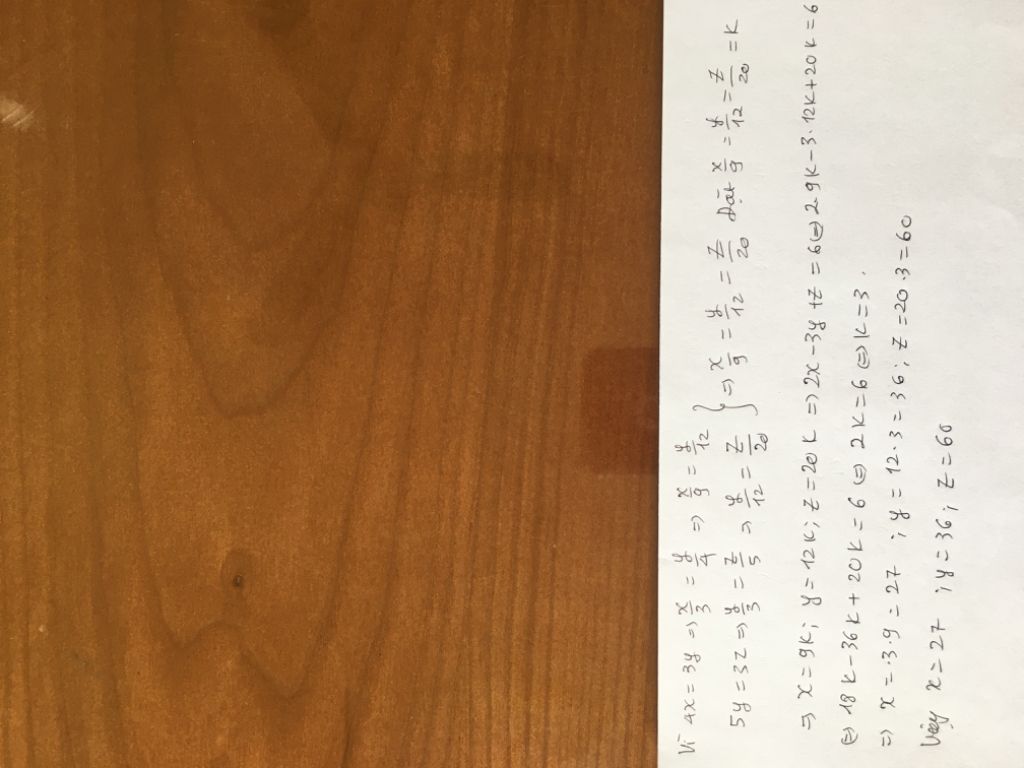 Vì 4x = 3y => x/3 = y/4 => x/9 = y/12
5y = 3z => y/3 = z/5 => y/12 = z/20 } => x/9 = y/12 = z/20 Đặt x/9 = y/12 = z/20 = k
=> x = 9k; y = 12k; z = 20k => 2x - 3y + z = 6 <=> 2 9k - 3 . 12k + 20k = 6
<=> 18k - 36k + 20k = 6 <=> 2k = 6 <=> k = 3 .
=> x = 3.9 = 27 ; y = 12.3 = 36 ; z = 20.3 = 60
Vậy x = 27 ; y = 36 ; z = 60